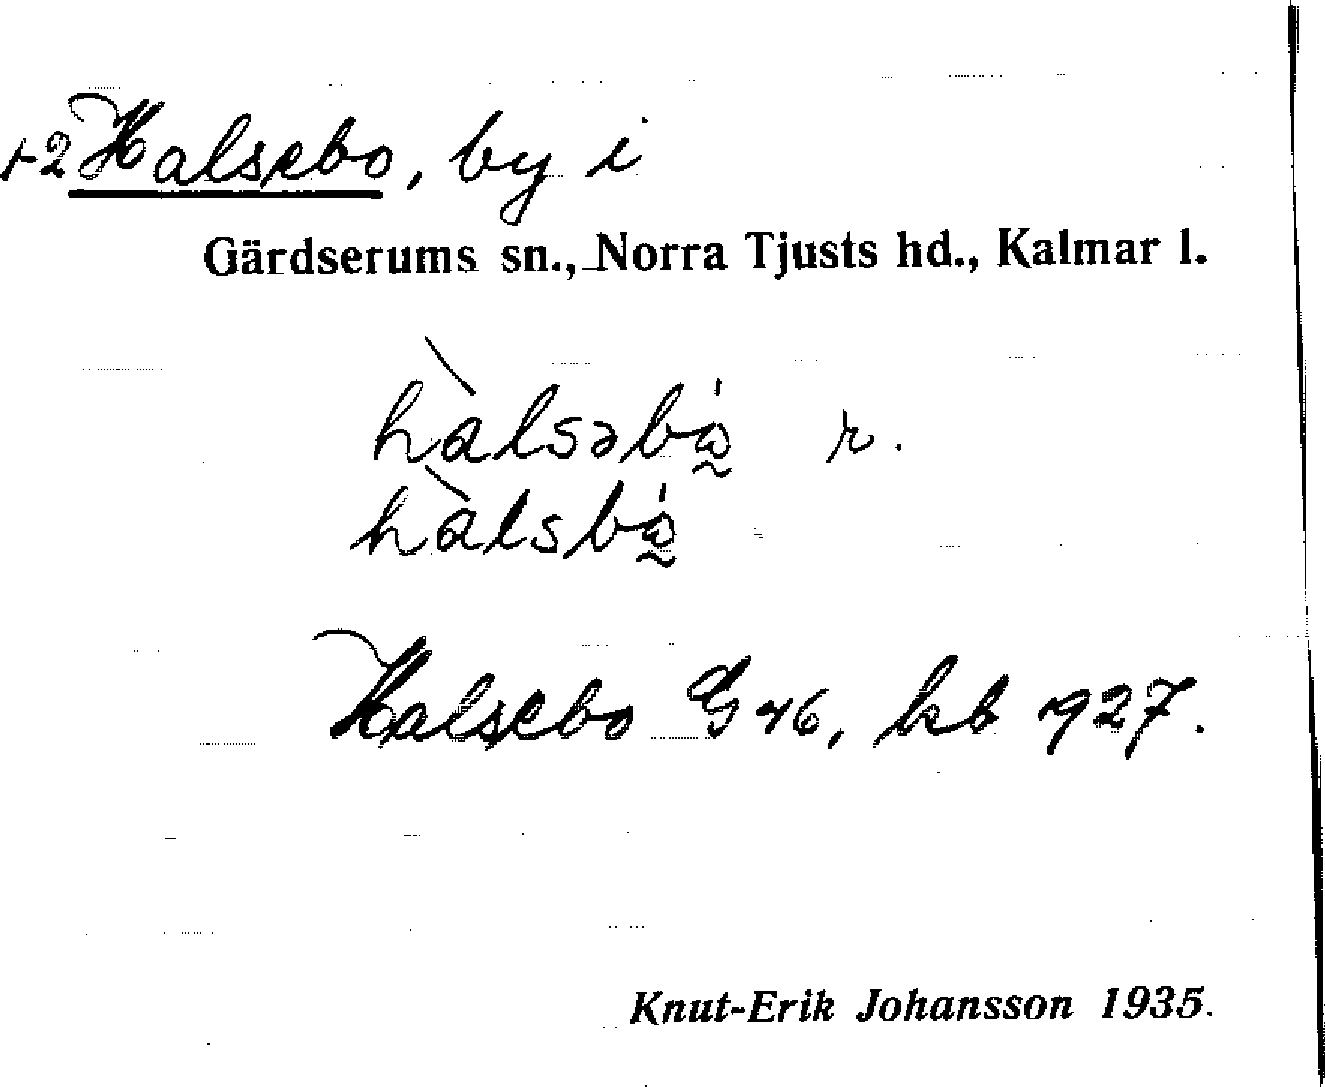 +2 Halsebo, by i
Gärdserums sn., Norra Tjusts hd., Kalmar l.
hàlsəbå̀ r.
hàlsbå̀
Halsebo G46, kb 1927.
Knut-Erik Johansson 1935.